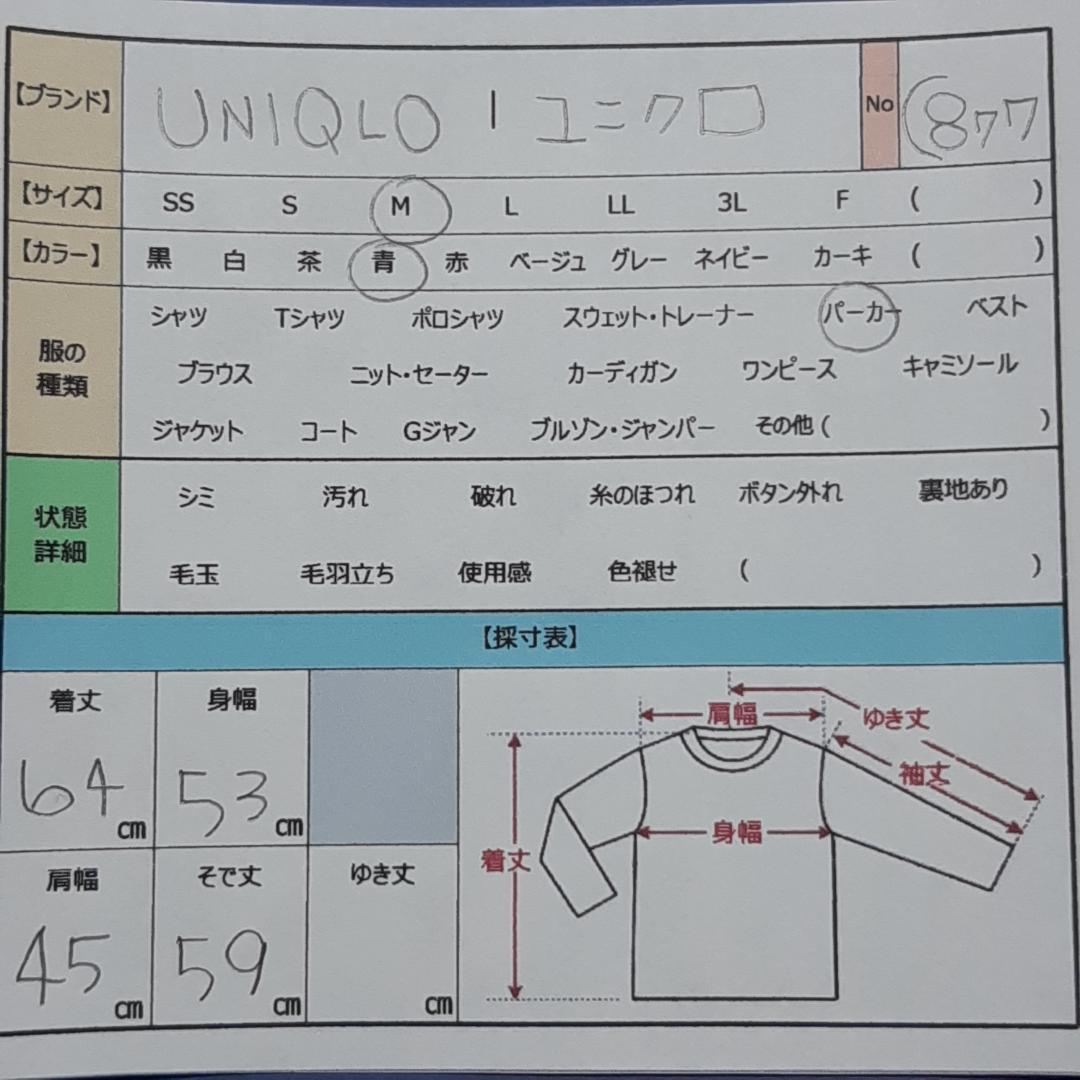 【ブランド】 UNIQLO | ユニクロ No (877
【サイズ】 SS S M L LL 3L F ( )
【カラー】 黒 白 茶 青 赤 ベージュ グレー ネイビー カーキ ( )
服の種類 シャツ Tシャツ ポロシャツ スウェット・トレーナー パーカー ベスト
ブラウス ニット・セーター カーディガン ワンピース キャミソール
ジャケット コート Gジャン ブルゾン・ジャンパー その他 ( )
状態詳細 シミ 汚れ 破れ 糸のほつれ ボタン外れ 裏地あり
毛玉 毛羽立ち 使用感 色褪せ ( )
【採寸表】
着丈 身幅
64 cm 53 cm
肩幅 そで丈 ゆき丈
45 cm 59 cm cm
肩幅 ゆき丈
袖丈
身幅
着丈